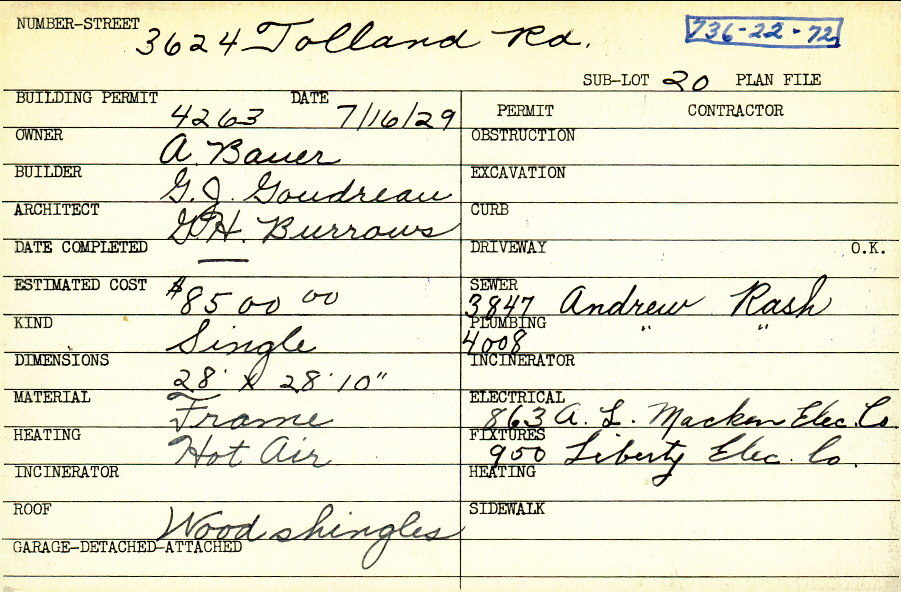 NUMBER-STREET 3624 Tolland Rd. 736-22-72
SUB-LOT 20 PLAN FILE
BUILDING PERMIT 4263 DATE 7/16/29
OWNER A. Bauer
BUILDER G.J. Goudreau
ARCHITECT G.H. Burrows
DATE COMPLETED —
ESTIMATED COST $8500 00
KIND Single
DIMENSIONS 28' x 28'10"
MATERIAL Frame
HEATING Hot Air
INCINERATOR
ROOF Wood shingles
GARAGE-DETACHED-ATTACHED
PERMIT CONTRACTOR
OBSTRUCTION
EXCAVATION
CURB
DRIVEWAY O.K.
SEWER 3847 Andrew Rash
PLUMBING 4008 " "
INCINERATOR
ELECTRICAL 863 A. L. Macken Elec. Co.
FIXTURES 950 Liberty Elec. Co.
HEATING
SIDEWALK